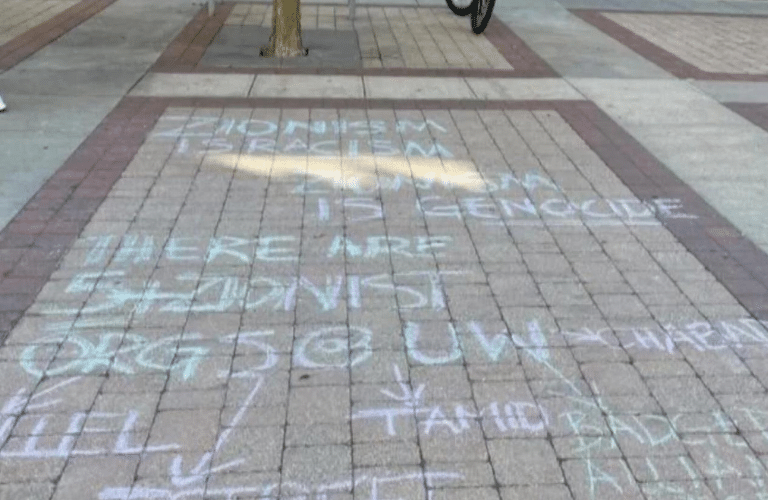 ZIONISM
IS RACISM
ZIONISM
IS GENOCIDE
THERE ARE
5+ ZIONIST
ORGS @ UW → CHABAD
TAMID
BADGER